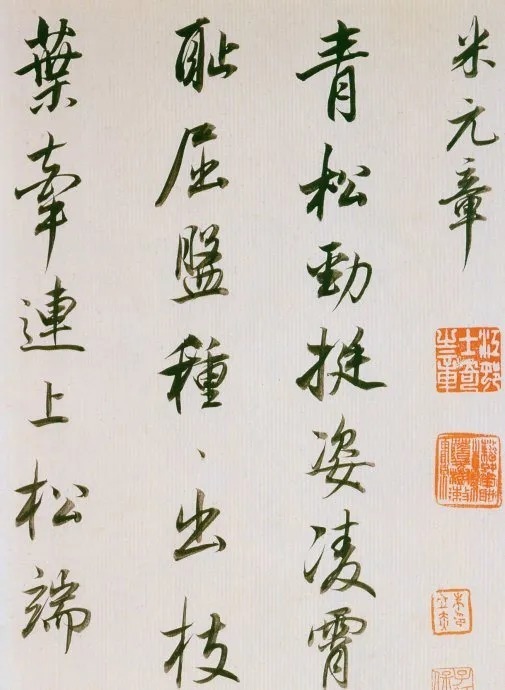 米元章
青松勁挺姿凌霄
恥屈盤種、出枝
葉牽連上松端